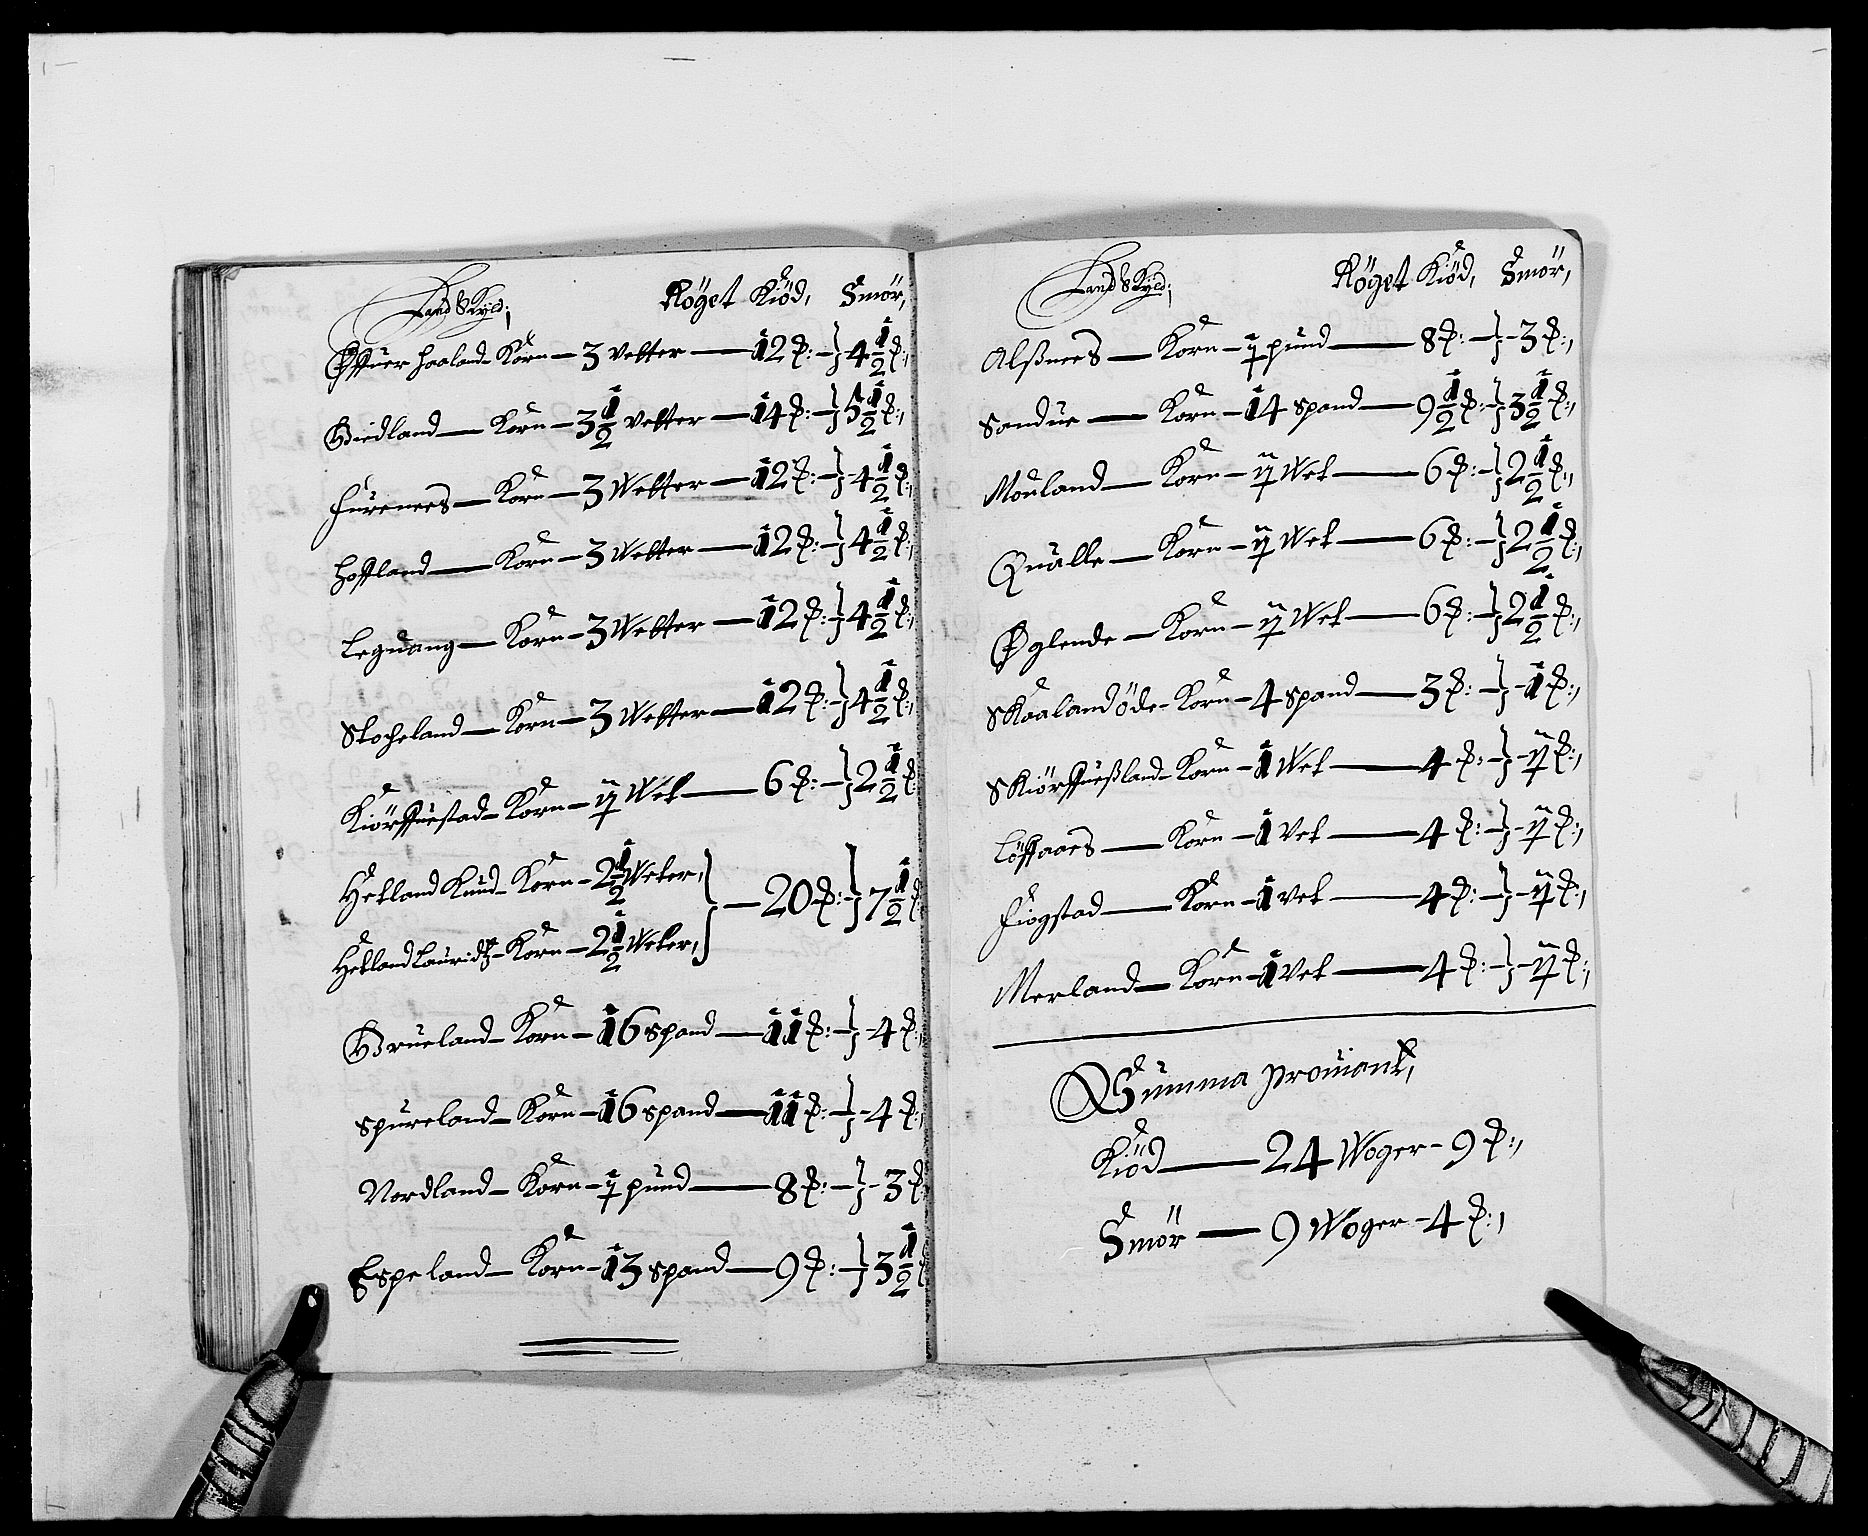 Land Skyld; Röget Kiöd, Smör,
Øffuer Haaland Korn – 3 Vetter – 12 ℔: – 4 1/2 ℔:,
Giedland – Korn – 3 1/2 Vetter – 14 ℔: – 5 1/2 ℔:,
Furenees – Korn – 3 Wetter – 12 ℔: – 4 1/2 ℔:,
Hoffland – Korn – 3 Wetter – 12 ℔: – 4 1/2 ℔:,
Leguang – Korn – 3 Wetter – 12 ℔: – 4 1/2 ℔:,
Stocheland – Korn – 3 Wetter – 12 ℔: – 4 1/2 ℔:,
Kiörffuestad – Korn – ij Wet – 6 ℔: – 2 1/2 ℔
Hetland Knud – Korn – 2 1/2 Weter, – 20 ℔: 7 1/2 ℔
Hetland Lauridtz – Korn – 2 1/2 Weter,
Grueland – Korn – 16 spand – 11 ℔: – 4 ℔:
Spureland – Korn – 16 spand – 11 ℔: – 4 ℔:,
Nordland – Korn – j pund – 8 ℔: – 3 ℔
Espeland – Korn – 13 spand – 9 ℔: – 3 1/2 ℔
Land Skyld; Röget Kiöd, Smör,
Alßnees – Korn – j pund – 8 ℔: – 3 ℔:,
Sandue – Korn – 14 spand – 9 1/2 ℔: – 3 1/2 ℔:,
Mouland – Korn – ij Wet – 6 ℔: – 2 1/2 ℔:,
Qualle – Korn – ij Wet – 6 ℔: – 2 1/2 ℔:,
Øglende – Korn – ij Wet – 6 ℔: – 2 1/2 ℔:,
Skaalandöde – Korn – 4 spand – 3 ℔: – 1 ℔:,
Skiörffueßland – Korn – 1 Wet – 4 ℔: – ij ℔:,
Löffaaes – Korn – 1 Vet – 4 ℔: – ij ℔:,
Fiogstad – Korn – 1 Vet – 4 ℔: – ij ℔:,
Merland – Korn – 1 Vet – 4 ℔: – ij ℔:,
Summa Prouiant,
Kiöd – 24 Woger – 9 ℔:,
Smör – 9 Woger – 4 ℔:,